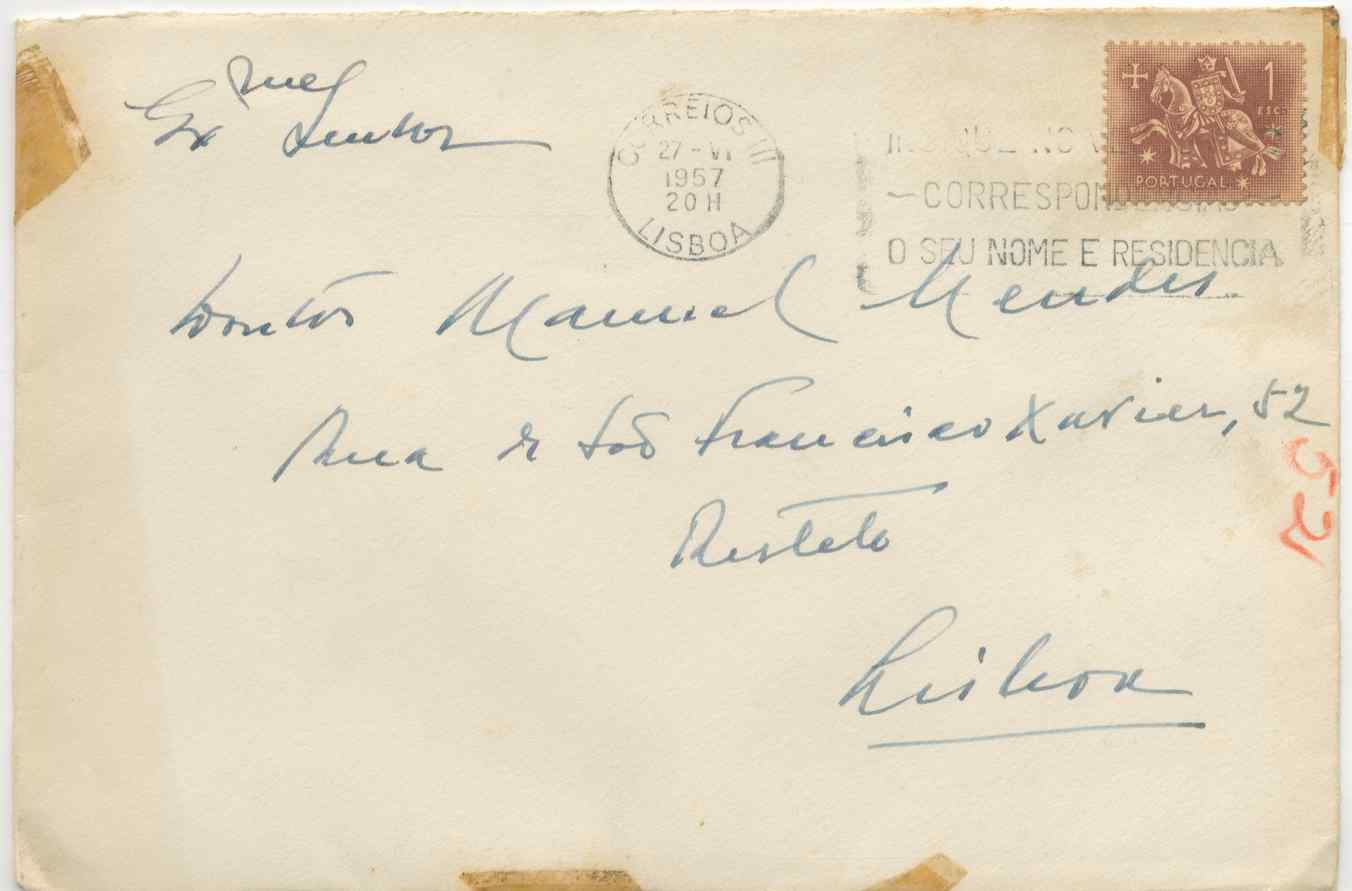 Ex mo Senhor
CORREIOS III
27-VI
1957
20 H
LISBOA
1
ESC.
PORTUGAL
INDIQUE NO
—CORRESPONDENCIAS
O SEU NOME E RESIDENCIA
Doutor Manuel Mendes
Rua de São Francisco Xavier, 52
52
Restelo
Lisboa